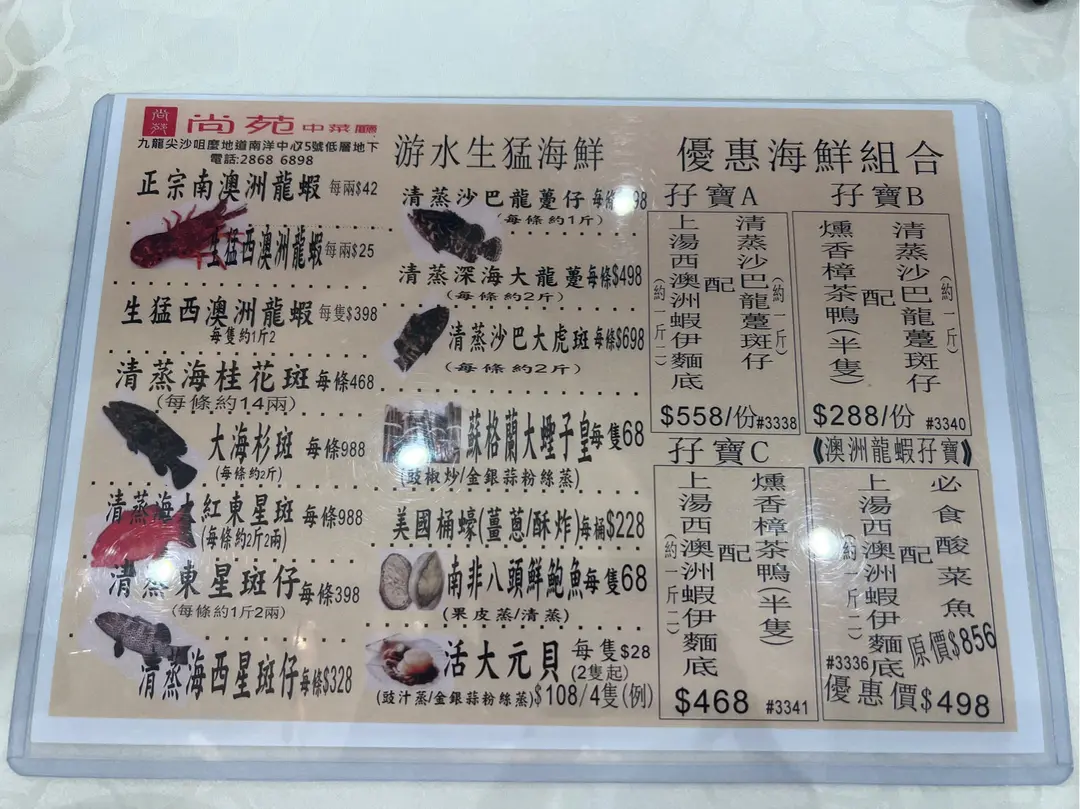 尚苑 尚苑中菜廳
九龍尖沙咀麼地道南洋中心75號低層地下
電話:2868 6898
正宗南澳洲龍蝦 每兩$42
生猛西澳洲龍蝦 每兩$25
生猛西澳洲龍蝦 每隻$398
每隻約1斤2
清蒸海桂花斑 每條468
(每條約14兩)
大海杉斑 每條988
(每條約2斤)
清蒸海 紅東星斑 每條988
(每條約2斤2兩)
清蒸東星斑仔 每條398
(每條約1斤2兩)
清蒸海西星斑仔 每條$328
游水生猛海鮮
清蒸沙巴龍躉仔 每條 98
(每條約1斤)
清蒸深海大龍躉 每條$498
(每條約2斤)
清蒸沙巴大虎斑 每條$698
(每條約2斤)
蘇格蘭大蟶子皇 每隻68
(豉椒炒/金銀蒜粉絲蒸)
美國桶蠔(薑蔥/酥炸)每桶$228
南非八頭鮮鮑魚 每隻68
(果皮蒸/清蒸)
活大元貝 每隻$28
(2隻起)
(豉汁蒸/金銀蒜粉絲蒸)$108/4隻(例)
優惠海鮮組合
孖寶A
清蒸沙巴龍躉斑仔(約一斤)
配
上湯西澳洲蝦伊麵底(約一斤二)
$558/份 #3338
孖寶B
清蒸沙巴龍躉斑仔(約一斤)
配
燻香樟茶鴨(半隻)
$288/份 #3340
孖寶C
燻香樟茶鴨(半隻)
配
上湯西澳洲蝦伊麵底(約一斤二)
$468 #3341
《澳洲龍蝦孖寶》
必食酸菜魚
配
上湯西澳洲蝦伊麵底(約一斤二)
原價$856
#3336
優惠價$498